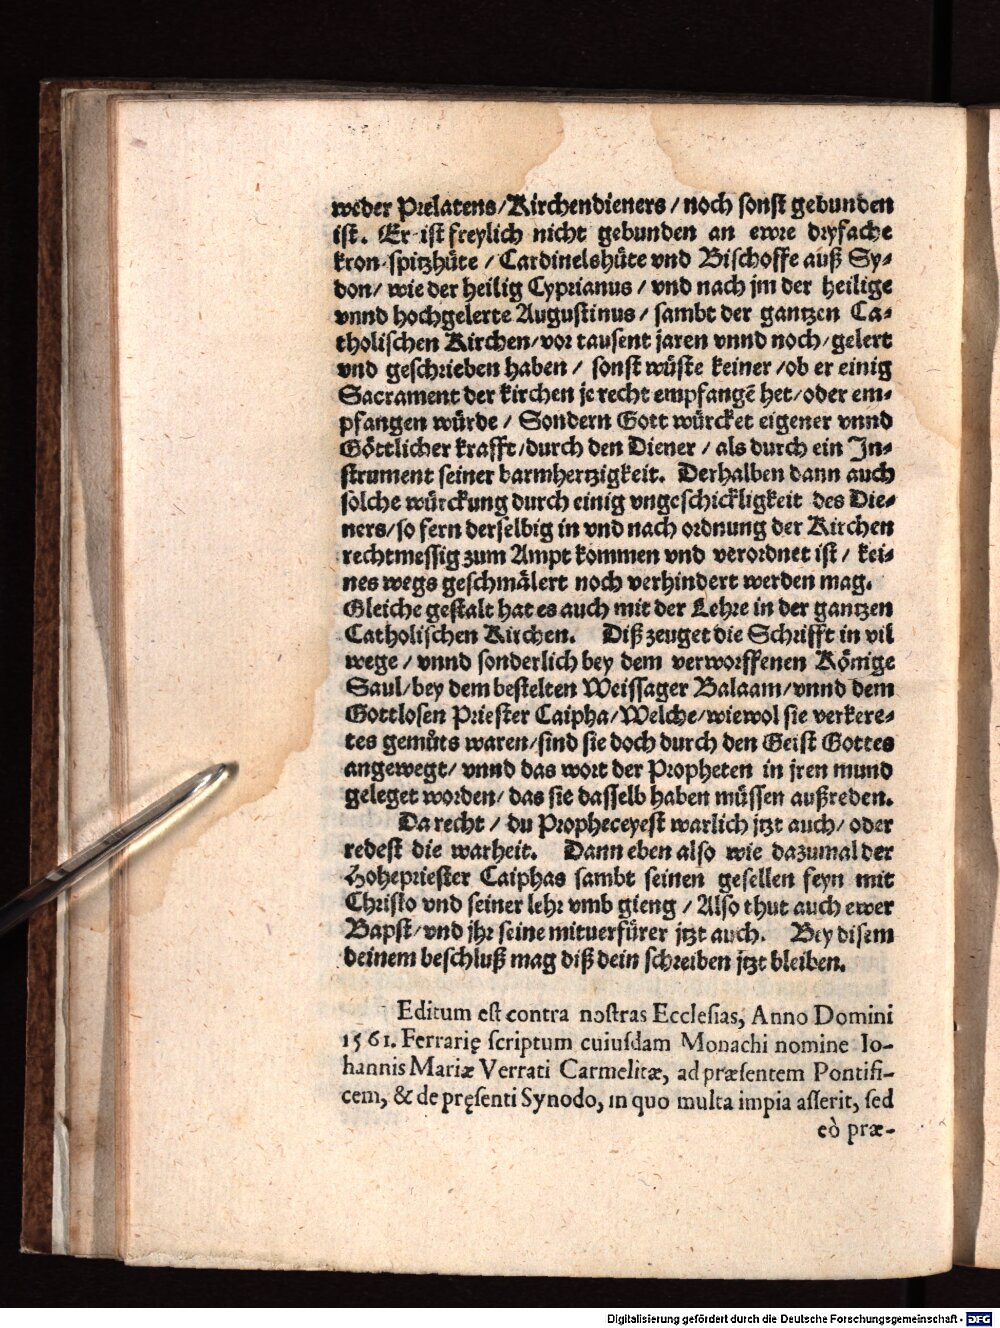 weder Prelatens/Kirchendieners/noch sonst gebunden
ist. Er ist freylich nicht gebunden an ewre dryfache
kron spitzhüte/Cardinelshüte vnd Bischoffe auß Sy-
don/wie der heilig Cyprianus/vnd nach jm der heilige
vnnd hochgelerte Augustinus/sambt der gantzen Ca-
tholischen Kirchen/vor tausent jaren vnnd noch/gelert
vnd geschrieben haben/sonst wüste keiner/ob er einig
Sacrament der kirchen je recht empfangẽ het/oder em-
pfangen würde/Sondern Gott würcket eigener vnnd
Göttlicher krafft/durch den Diener/als durch ein In-
strument seiner barmhertzigkeit. Derhalben dann auch
solche würckung durch einig vngeschickligkeit des Die-
ners/so fern derselbig in vnd nach ordnung der Kirchen
rechtmessig zum Ampt kommen vnd verordnet ist/kei-
nes wegs geschmälert noch verhindert werden mag.
Gleiche gestalt hat es auch mit der Lehre in der gantzen
Catholischen Kirchen. Diß zeuget die Schrifft in vil
wege/vnnd sonderlich bey dem verworffenen Könige
Saul/bey dem bestelten Weissager Balaam/vnnd dem
Gottlosen Priester Caipha/Welche/wiewol sie verkere-
tes gemüts waren/sind sie doch durch den Geist Gottes
angewegt/vnnd das wort der Propheten in jren mund
geleget worden/das sie dasselb haben müssen außreden.
Da recht/du Propheceyest warlich jtzt auch/oder
redest die warheit. Dann eben also wie dazumal der
Hohepriester Caiphas sambt seinen gesellen feyn mit
Christo vnd seiner lehr vmb gieng/Also thut auch ewer
Bapst/vnd jhr seine mituerfürer jtzt auch. Bey disem
deinem beschluß mag diß dein schreiben jtzt bleiben.
Editum est contra nostras Ecclesias, Anno Domini
1561. Ferrarię scriptum cuiusdam Monachi nomine Io-
hannis Mariæ Verrati Carmelitæ, ad præsentem Pontifi-
cem, & de pręsenti Synodo, in quo multa impia asserit, sed
eò præ-
Digitalisierung gefördert durch die Deutsche Forschungsgemeinschaft - DFG